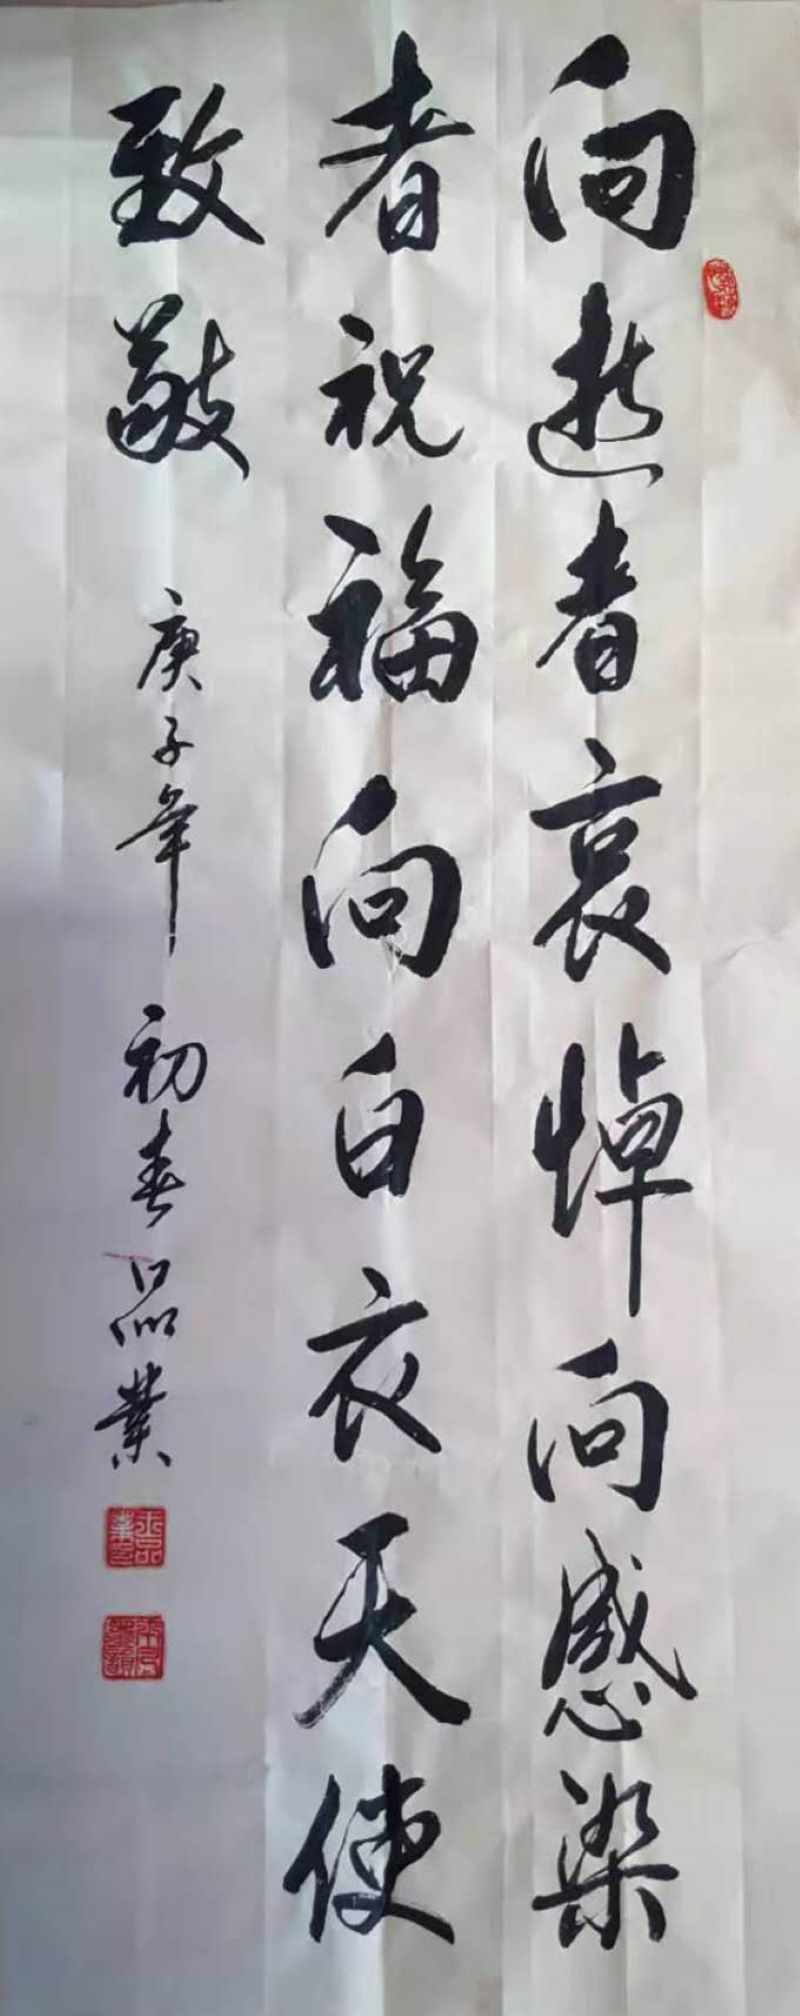 向逝者哀悼向感染
者祝福向白衣天使
致敬
庚子年初春品業